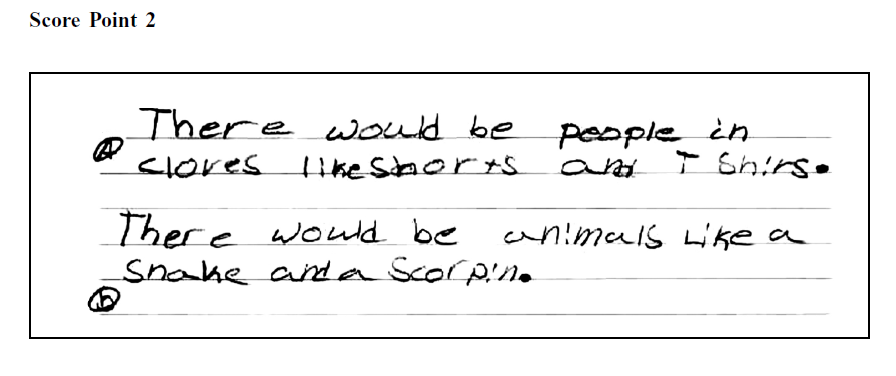 Score Point 2
There would be people in
(A) cloves like shorts and T Shirs.
There would be animals like a
Snake and a Scorpin.
(b)